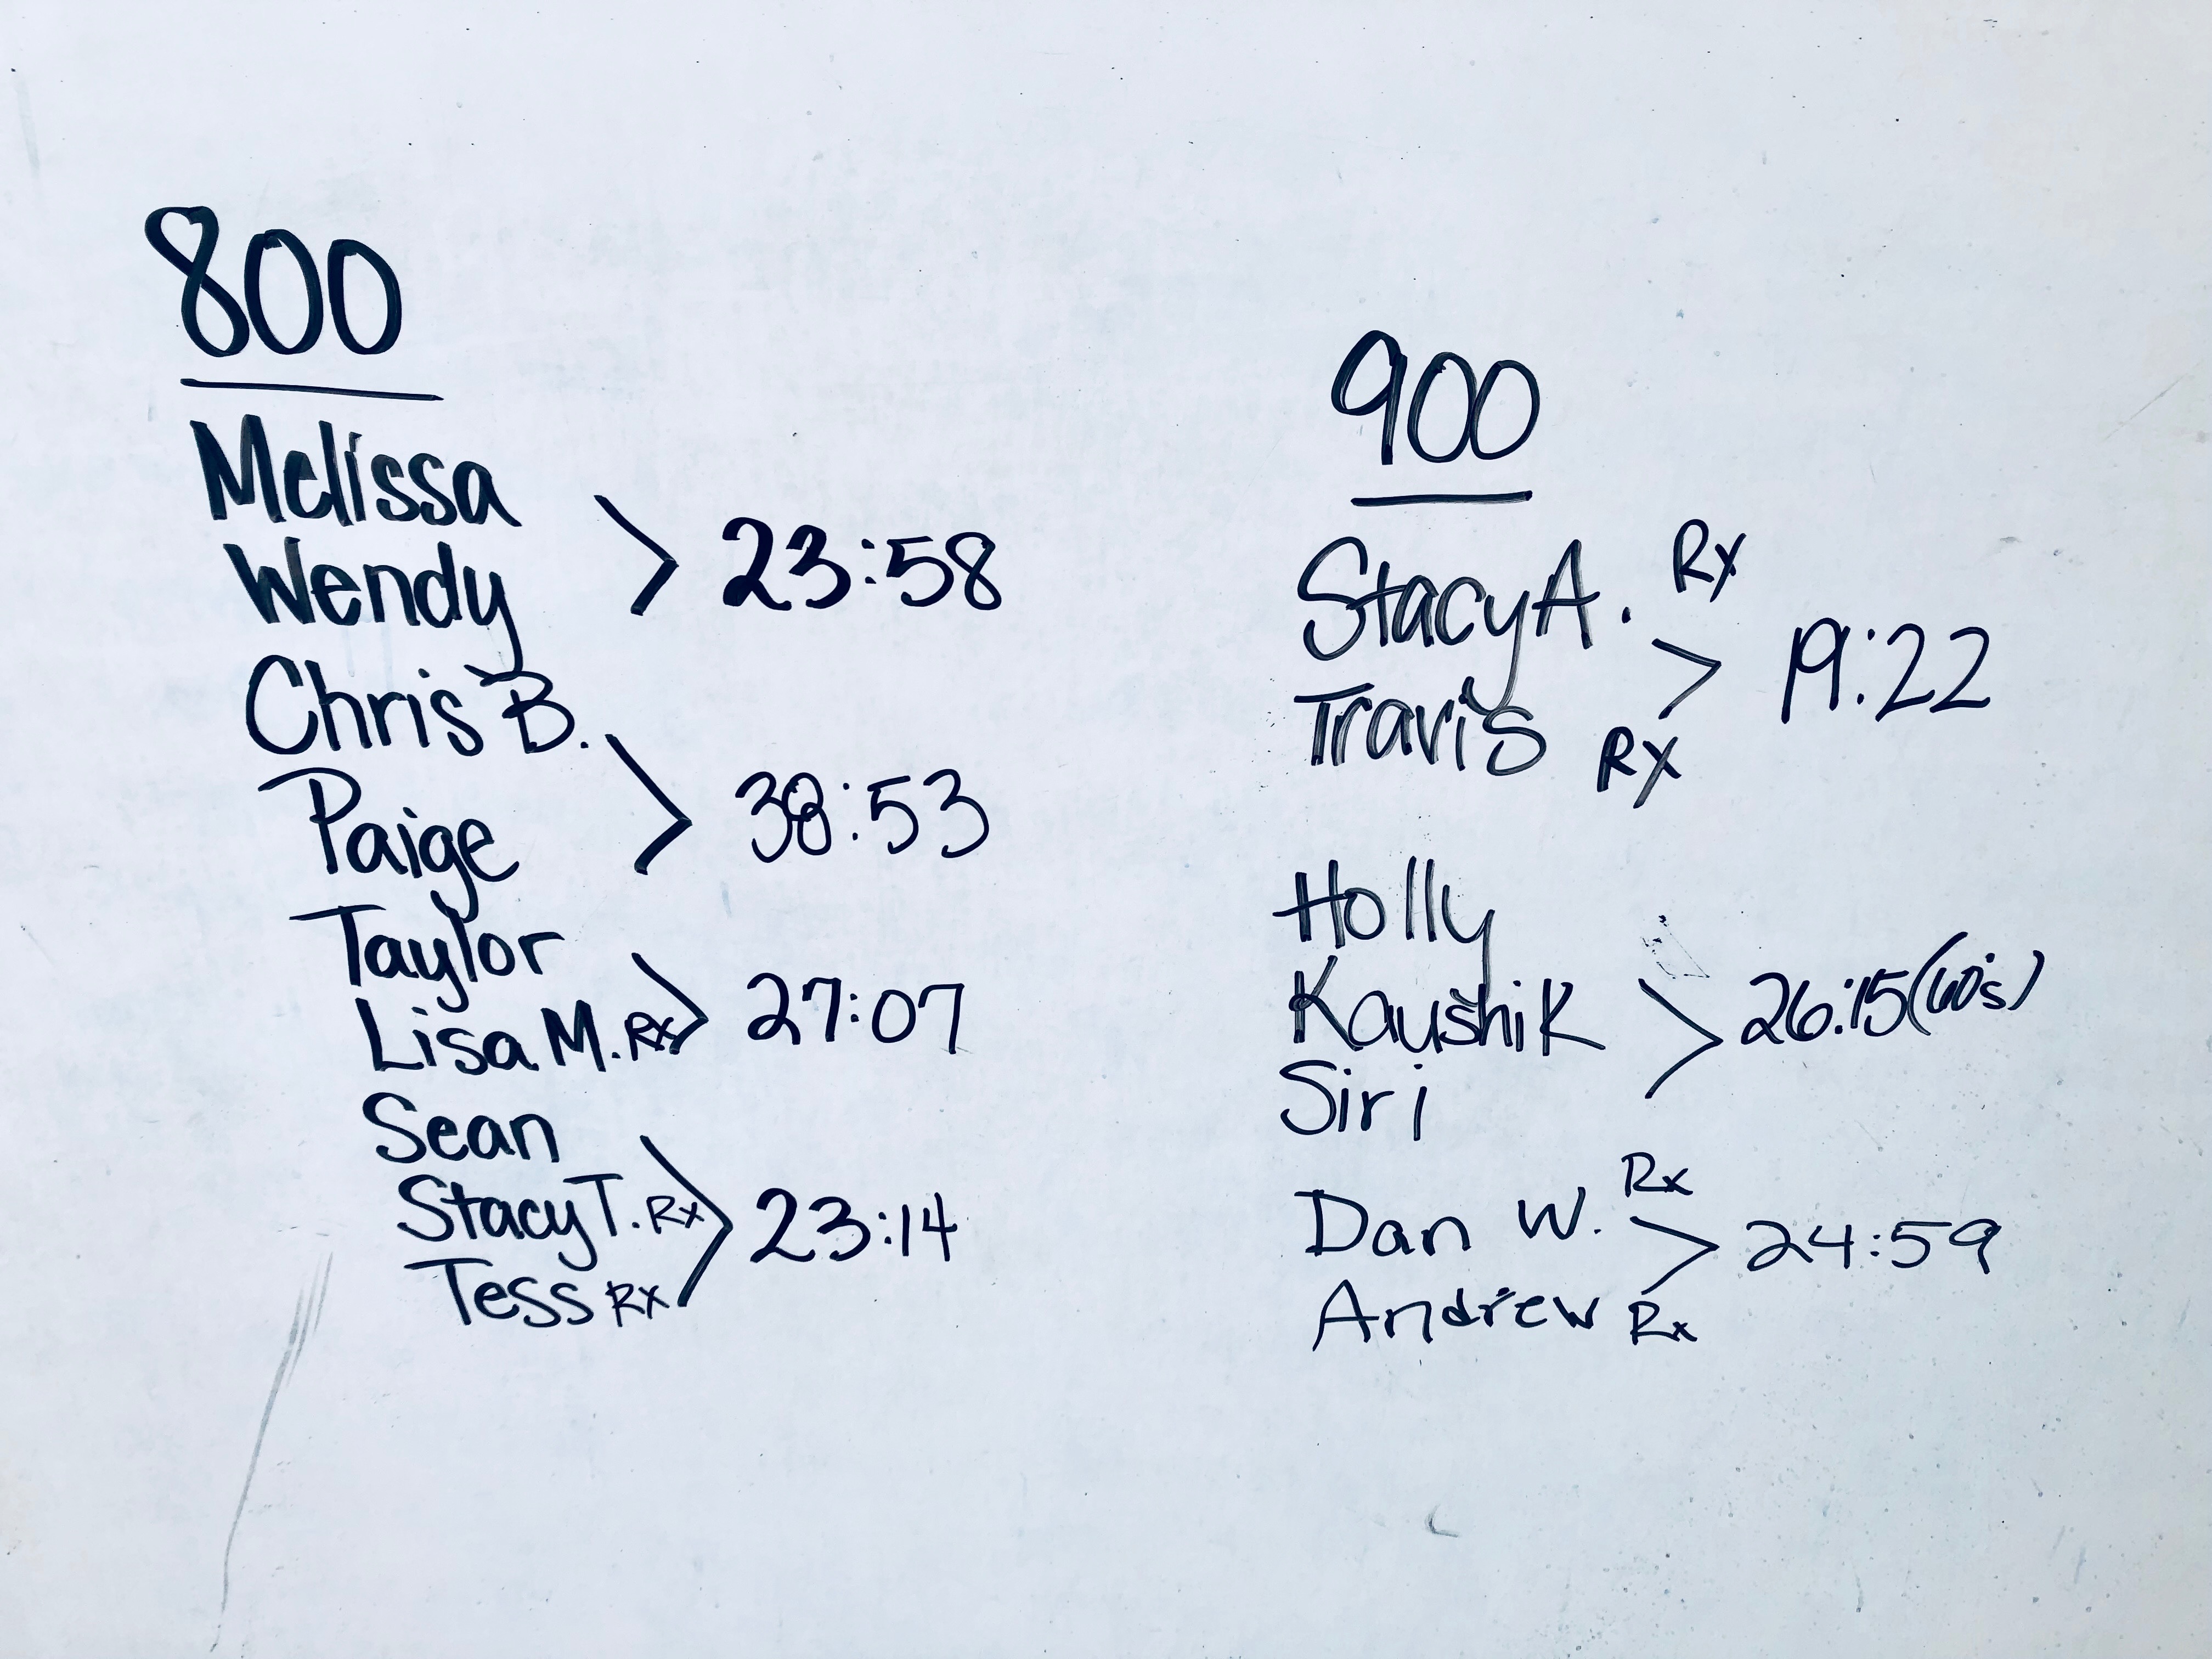 800
Melissa
Wendy
> 23:58
Chris B.
Paige
> 38:53
Taylor
Lisa M. Rx
> 27:07
Sean
Stacy T. Rx
Tess Rx
> 23:14
900
Stacy A. Rx
Travis Rx
> 19:22
Holly
Kaushik
Siri
> 26:15 (60's)
Dan W. Rx
Andrew Rx
> 24:59